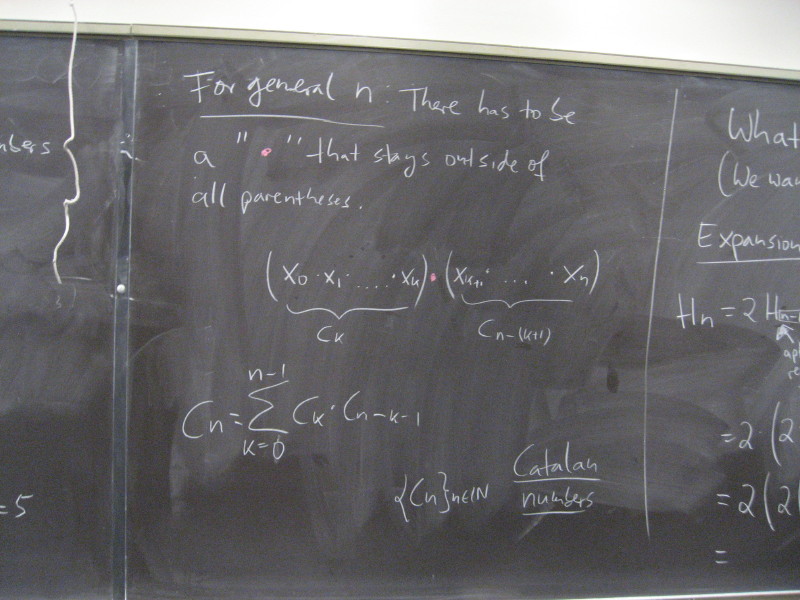 For general n: There has to be
a " • " that stays outside of
all parentheses.
(x₀ · x₁ · .... · xₖ) • (xₖ₊₁ · ... · xₙ)
Cₖ
Cₙ₋₍ₖ₊₁₎
n-1
Cₙ = ∑ Cₖ · Cₙ₋ₖ₋₁
k=0
{Cₙ}ₙ∈ℕ Catalan
numbers
= 5
What
(We wan
Expansion
Hₙ = 2Hₙ₋₁
= 2 · (2
= 2 (2(
=